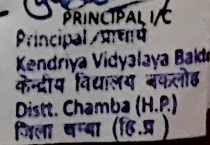 PRINCIPAL I/C
Principal /प्राचार्य
Kendriya Vidyalaya
केन्द्रीय विद्यालय बकलोह
Distt. Chamba (H.P.)
जिला चम्बा (हि.प्र)